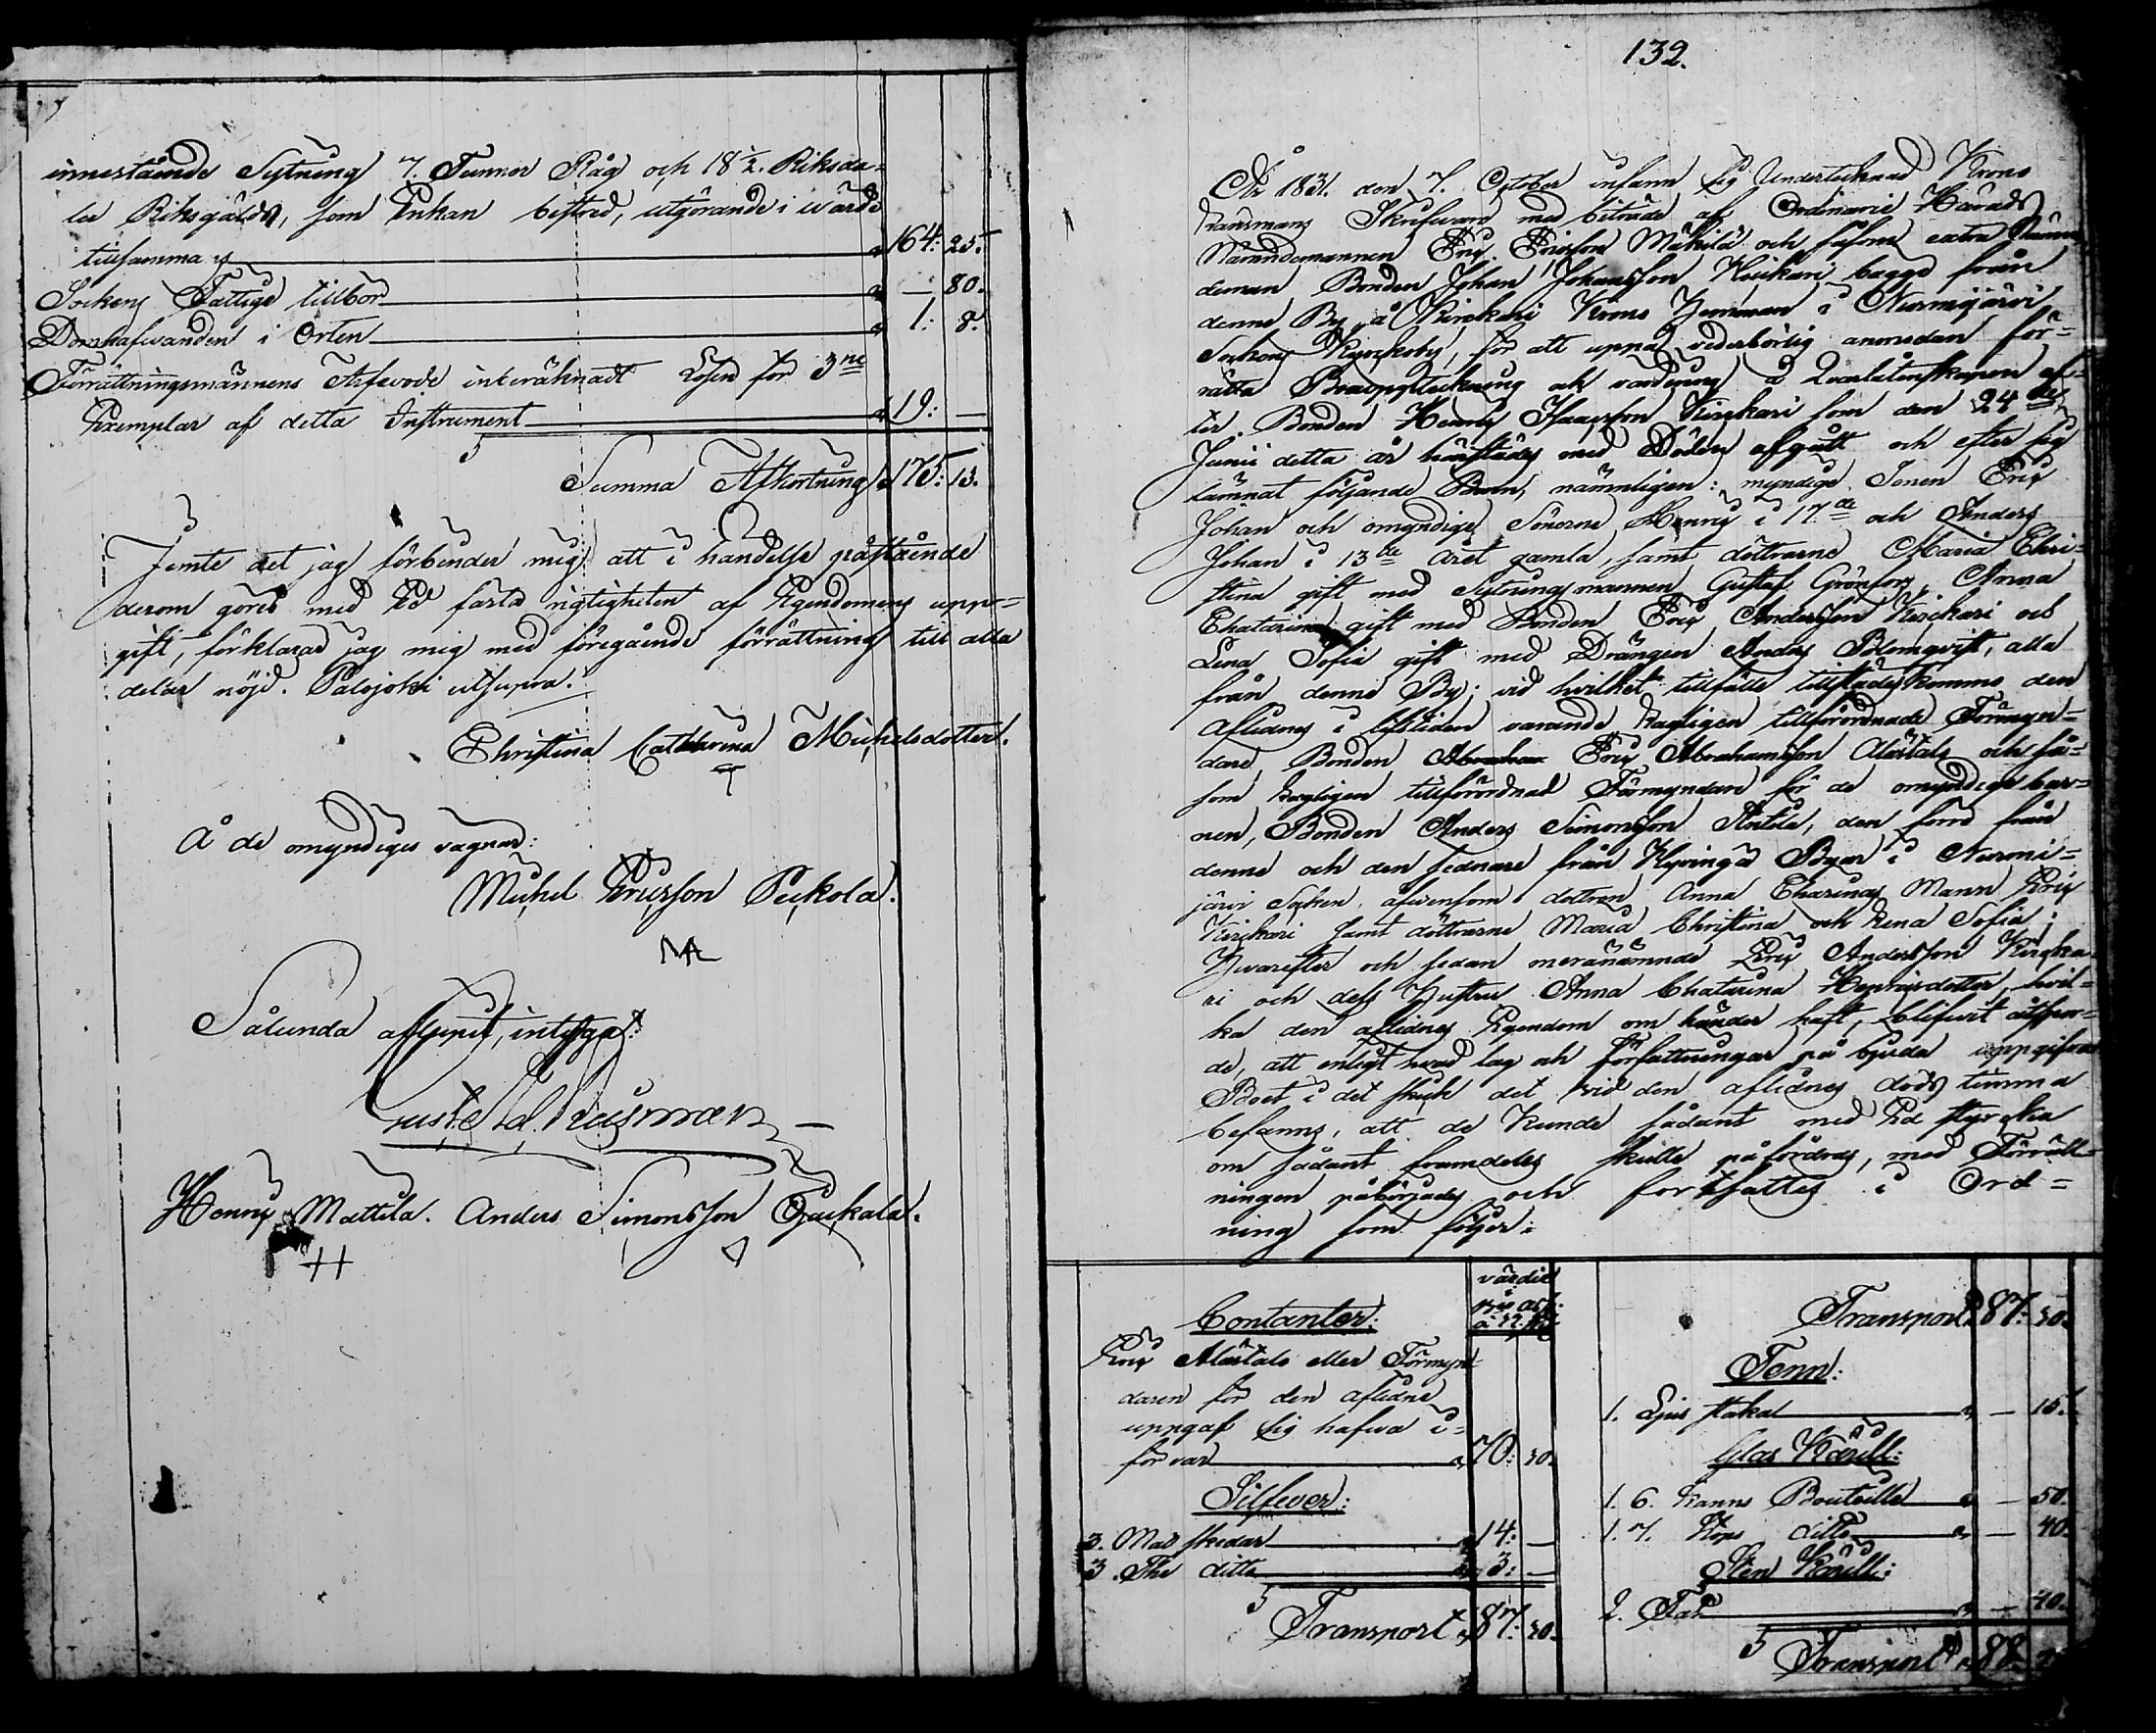 innestående Sytning 7. Tunnor Råg och 18 1/2. Riksda-
ler Riksgälds, som Enkan bestred, utgörande i wärde
tillsammans 164: 25.
Sockens Fattige tillkor — 80.
Domhafwanden i Orten 1: 8.
Förrättningsmännens Arfvode inberäknadt Lösen för 3ne
Exemplar af detta Instrument 19: —
Summa Afkortning 175: 13.
Jemte det jag förbinder mig att i händelse påstående
derom göres med Ed fästa rigtigheten af Egendomens upp-
gift, förklarar jag mig med föregående förrättning till alla
delar nöjd. Palojoki utsupra.
Christina Catharina Michelsdotter.
Å de omyndiges vägnar:
Michel Ericsson Peckola.
Sålunda aflupit, intyga:
Gust. Ad. Kusman
Henric Mattila. Anders Simonsson
132.
År 1831. den 7. October infann sig Undertecknad Krono
Länsmans Skrifvare med biträde af Ordinarie Härads
Nämndemannen Eric Ericsson Mäkilä och såsom extra Nämn-
deman Bonden Johan Johansson Kirickari bägge från
denne By, å Kirickari Krono Hemman i Nurmijärvi
Sockens Kyrckoby, för att uppå vederbörlig anmodan för-
rätta Bouppteckning och värdering å Qvarlåtenskapen ef-
ter Bonden Henric Isaacsson Kirickari som den 24de
Junii detta år härstädes med Döden afgått och efter sig
lämnat följande Barn, nämnligen: myndige Sonen Eric
Johan och omyndige Sönerne Henric i 17de och Anders
Johan i 13de året gamla, samt döttrarne Maria Chri-
stina gift med Sytningsmannen Gustaf Grönfors, Anna
Chatarina gift med Bonden Eric Andersson Kirickari och
Lena Sofia gift med Drängen Anders Blomqvist, alla
från denne By; vid hvilket tillfälle tillstädes kommo den
aflidnes i lifstiden varande Lagligen tillförordnade Förmyn-
dare Bonden Abraham Eric Abrahamsson Alästalo och så-
som Lagligen tillförordnad Förmyndare för de omyndige bar-
nen, Bonden Anders Simonsson Antila, den förre från
denne och den sednare från Hyvingä Byar i Nurmi-
järvi Socken, äfvensom dottren Anna Charinas Mann Eric
Kirickari samt döttrarne Maria Christina och Lena Sofia;
Hvarefter och sedan meranämnde Eric Andersson Kiricka-
ri och dess Hustru Anna Chatarina Henricsdotter, hvil-
ka den aflidnes Egendom om händer haft, blifvit åtspor-
de, att enligt hvad lag och författningar på bjuda uppgifva
Boet i det skick det vid den aflidnes döds timma
befanns, att de kunde sådant med Ed styrcka
om sådant framdeles skulle påfordras, med Förrätt-
ningen påbörjades och fortsattes i Ord-
ning som följer:
Contanter:
värdie
Eric Alästalo eller Förmyn-
daren för den aflidne
uppgaf sig hafva i
förvar 70: 30.
Silfwer:
3. Mat skedar 14: —
3. The ditto 3: —
Transport 87: 30.
Transport 87: 30.
Tenn:
1. Ljus staka — 15.
Glas Kärill:
1. 6. Kanns Bouteille — 50.
1. 7. Stops ditto — 40.
Sten Kärill:
2. Fat — 40.
Transport 88: